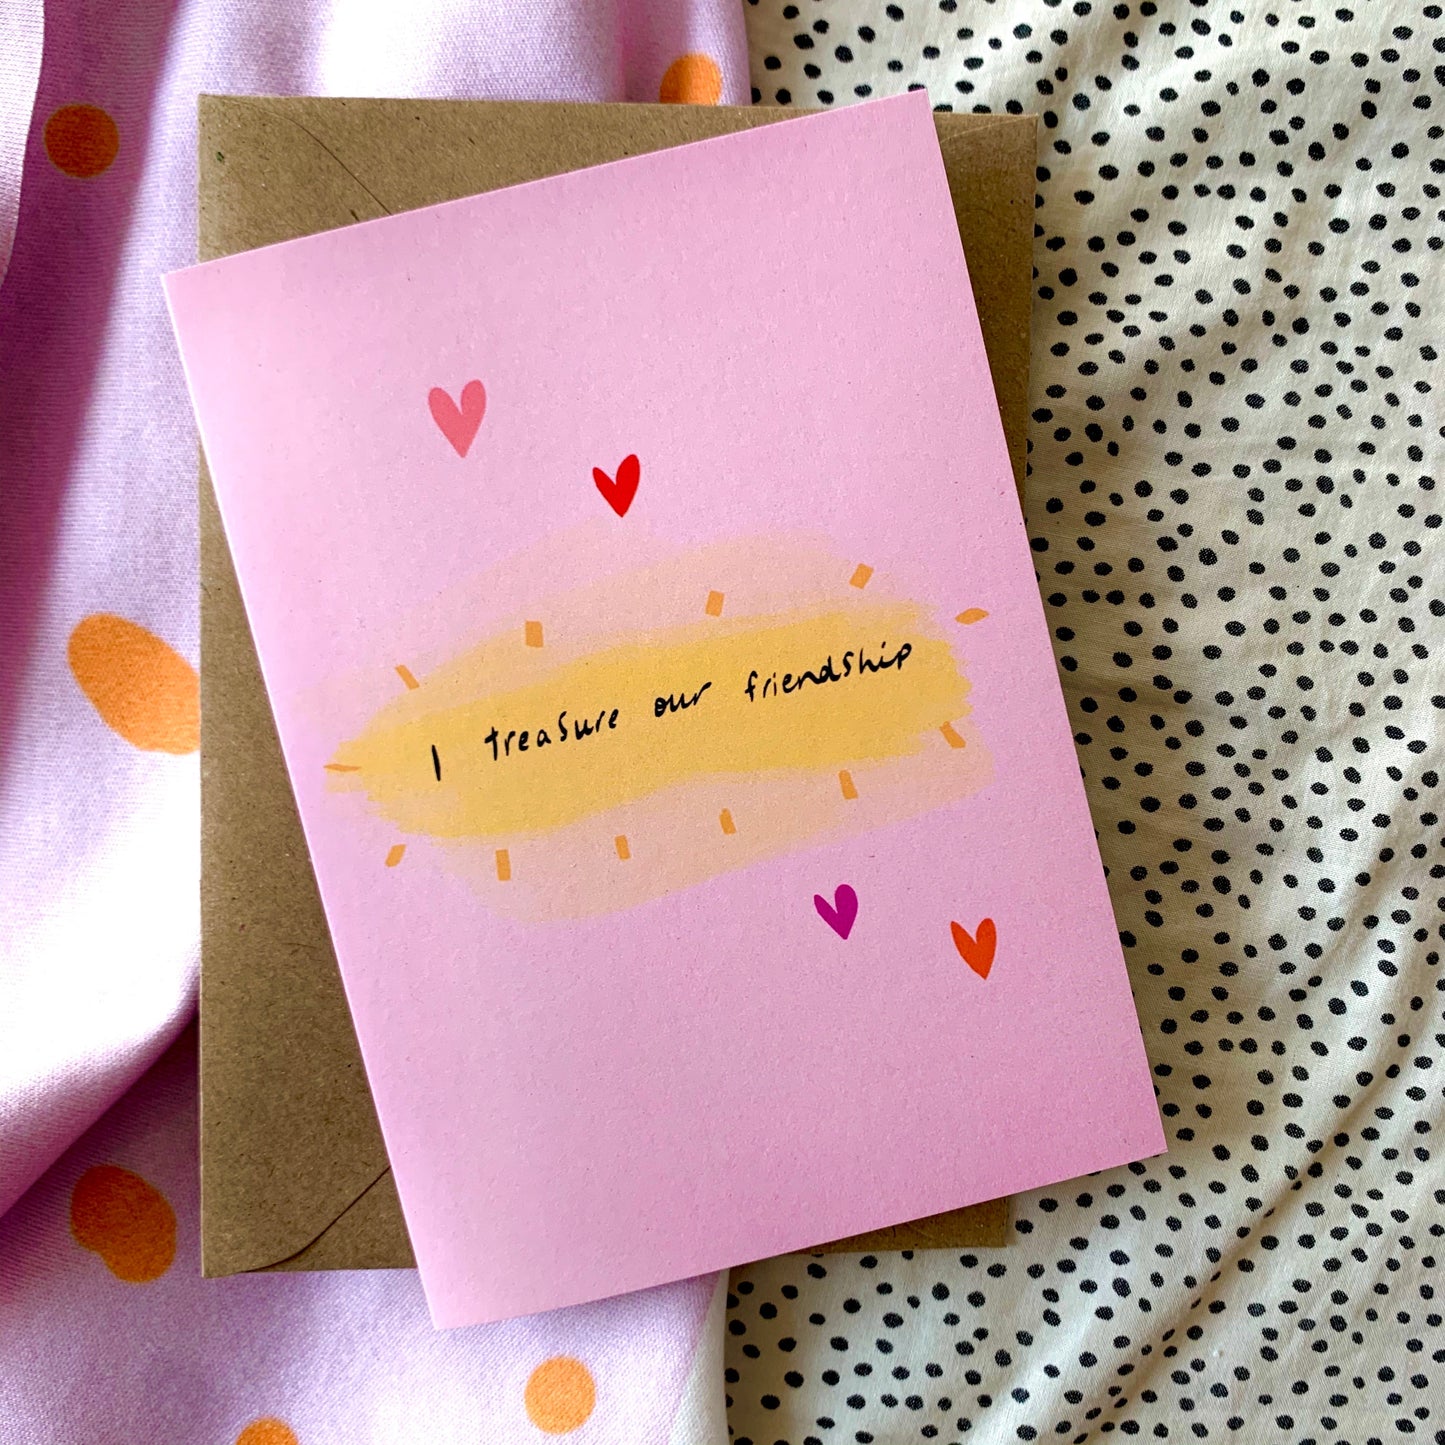 I treasure our friendship